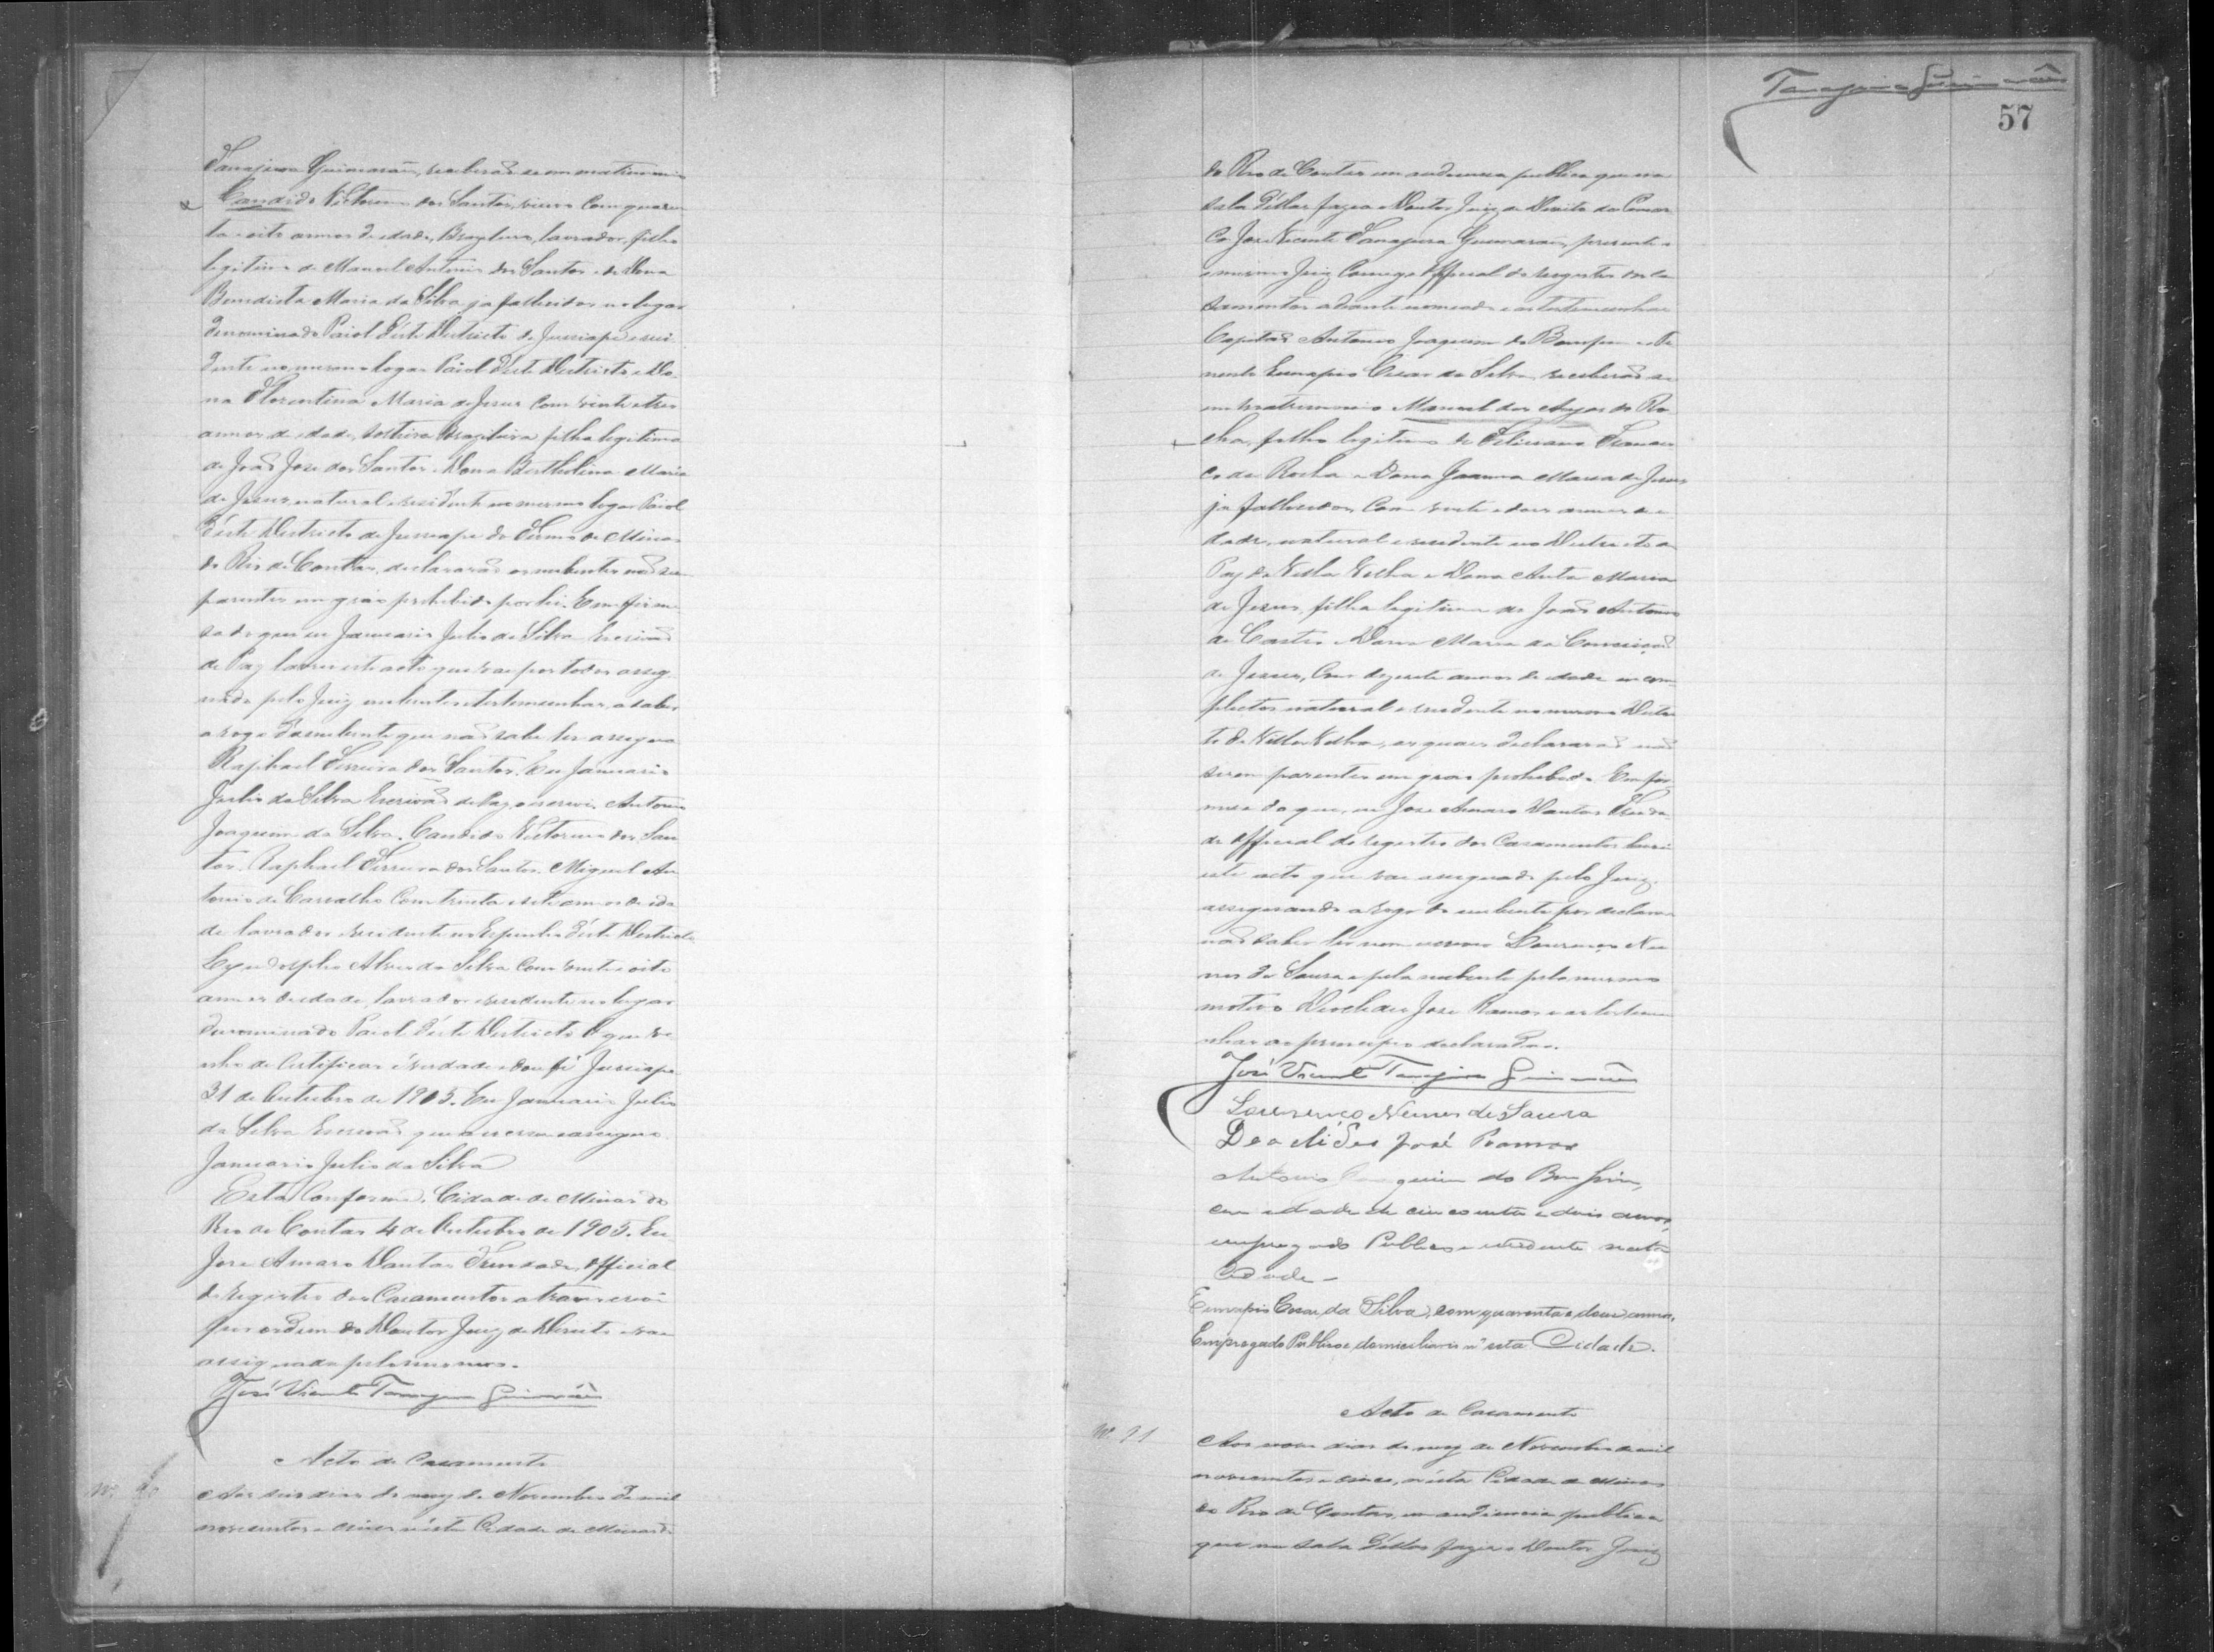 Tanajura Guimarães, receberão se em matrimonio
Candido Victorino dos Santos, viuvo com quaren
ta e oito annos de edade, Brazileiro, lavrador, filho
legitimo de Manoel Antonio dos Santos e de Dona
Benedicta Maria da Silva, ja fallecidos no logar
denominado Paiol d'este Districto de Jussiape e resi
dente no mesmo logar Paiol d'este Districto e Do
na Florentina Maria de Jesus com vinte e tres
annos de edade, solteira Brazileira filha legitima
de João José dos Santos e Dona Bertholina Maria
de Jesus natural e residente no mesmo logar Paiol
d'este Districto de Jussiape do Termo de Minas
do Rio de Contas, declararão os nubentes não ser
parentes em gráo prohibido por lei. Em firme
sa do que eu Januario Julio da Silva Escrivão
de Paz lavrei este acto que vae por todos assig
nado pelo Juiz nubentes e testemunhas, a saber
a rogo da nubente que não sabe ler assigna
Raphael Ferreira dos Santos. Eu Januario
Julio da Silva Escrivão de Paz o escrevi. Antonio
Joaquim da Silva. Candido Victorino dos San
tos. Raphael Ferreira dos Santos. Miguel An
tonio de Carvalho com trinta e sete annos de ida
de lavrador residente no Espinho d'este Districto
Alves da Silva com vinte e oito
annos de edade, lavrador e residente no logar
denominado Paiol d'este Districto. O que ve
nho de certificar é verdade e dou fé Jussiape
31 de Outubro de 1905. Eu Januario Julio
da Silva Escrivão que o escrevi e assigno
Januario Julio da Silva
Está conforme. Cidade de Minas do
Rio de Contas 4 de Outubro de 1905. Eu
José Amaro Dantas Trindade, Official
do registro dos Casamentos a transcrevi
por ordem do Doutor Juiz de Direito e vae
assignada pelo mesmo.
José Vicente Tanajura Guimarães
Acto de Casamento
Nº 90
Aos seis dias do mez de Novembro de mil
novecentos e cinco n'esta Cidade de Minas do
Tanajura Guimarães
57
do Rio de Contas em audiencia publica que na
sala d'ellas fazia o Doutor Juiz de Direito da Comar
ca José Vicente Tanajura Guimarães, presente o
mesmo Juiz Comigo Official do registro dos ca
samentos adiante nomeado e as testemunhas
Capitão Antonio Joaquim do Bomfim e Te
nente Eunapio Cesar da Silva, receberão se
em matrimonio Manoel dos Anjos da Ro
cha, filho legitimo de Feliciano Francis
co da Rocha e Dona Joanna Maria de Jesus
ja fallecidos, Com vinte e dois annos de e
dade, natural e residente no Districto de
Paz da Villa Velha e Dona Anta Maria
de Jesus, filha legitima de João Antonio
de Castro e Dona Maria da Conceição
de Jesus, Com dezesete annos de edade in com
pletos natural e residente no mesmo Distri
to de Villa Velha, os quaes declararão não
serem parentes em gráo prohibido. Em fir
mesa do que, eu José Amaro Dantas Trinda
de Official do registro dos Casamentos lavrei
este acto que vae assignado pelo Juiz
assignando a rogo do nubente por declarar
não saber ler nem escrever Lourenço Nu
nes de Souza e pela nubente pelo mesmo
motivo Deoclides José Ramos e as testemu
nhas ao principio declaradas.
José Vicente Tanajura Guimarães
Lourenço Nunes de Souza
Deoclides José Ramos
Antonio Joaquim do Bomfim,
com edade de cincoenta e dois annos,
empregado Publico e residente nesta
Cidade –
Eunapio Cesar da Silva, com quarenta e dous annos,
Empregado Publico e domiciliario n'esta Cidade.
Acto de Casamento
Nº 91
Aos nove dias do mez de Novembro de mil
novecentos e cinco, n'esta Cidade de Minas
do Rio de Contas, em audiencia publica
que na sala d'ellas fazia o Doutor Juiz